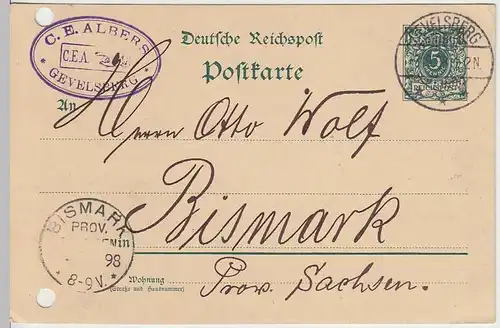 C. E. ALBERS
C.E.A.
* GEVELSBERG *
Deutsche Reichspost
Postkarte
GEVELSBERG
5
N.
An
Herrn Otto Wolf
in
Bismark
BISMARK
PROV.
98
* 8-9V. *
Wohnung
(Straße und Hausnummer)
Prov. Sachsen.